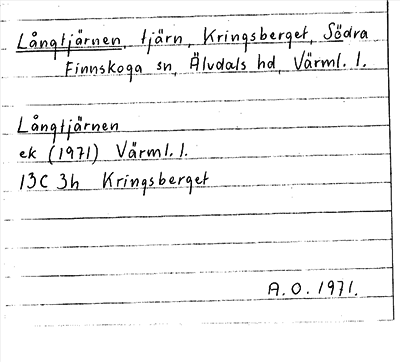 Långtjärnen, tjärn, Kringsberget, Södra
Finnskoga sn, Älvdals hd, Värml. l.
Långtjärnen
ek (1971) Värml. l.
13C 3h Kringsberget
A.O. 1971.